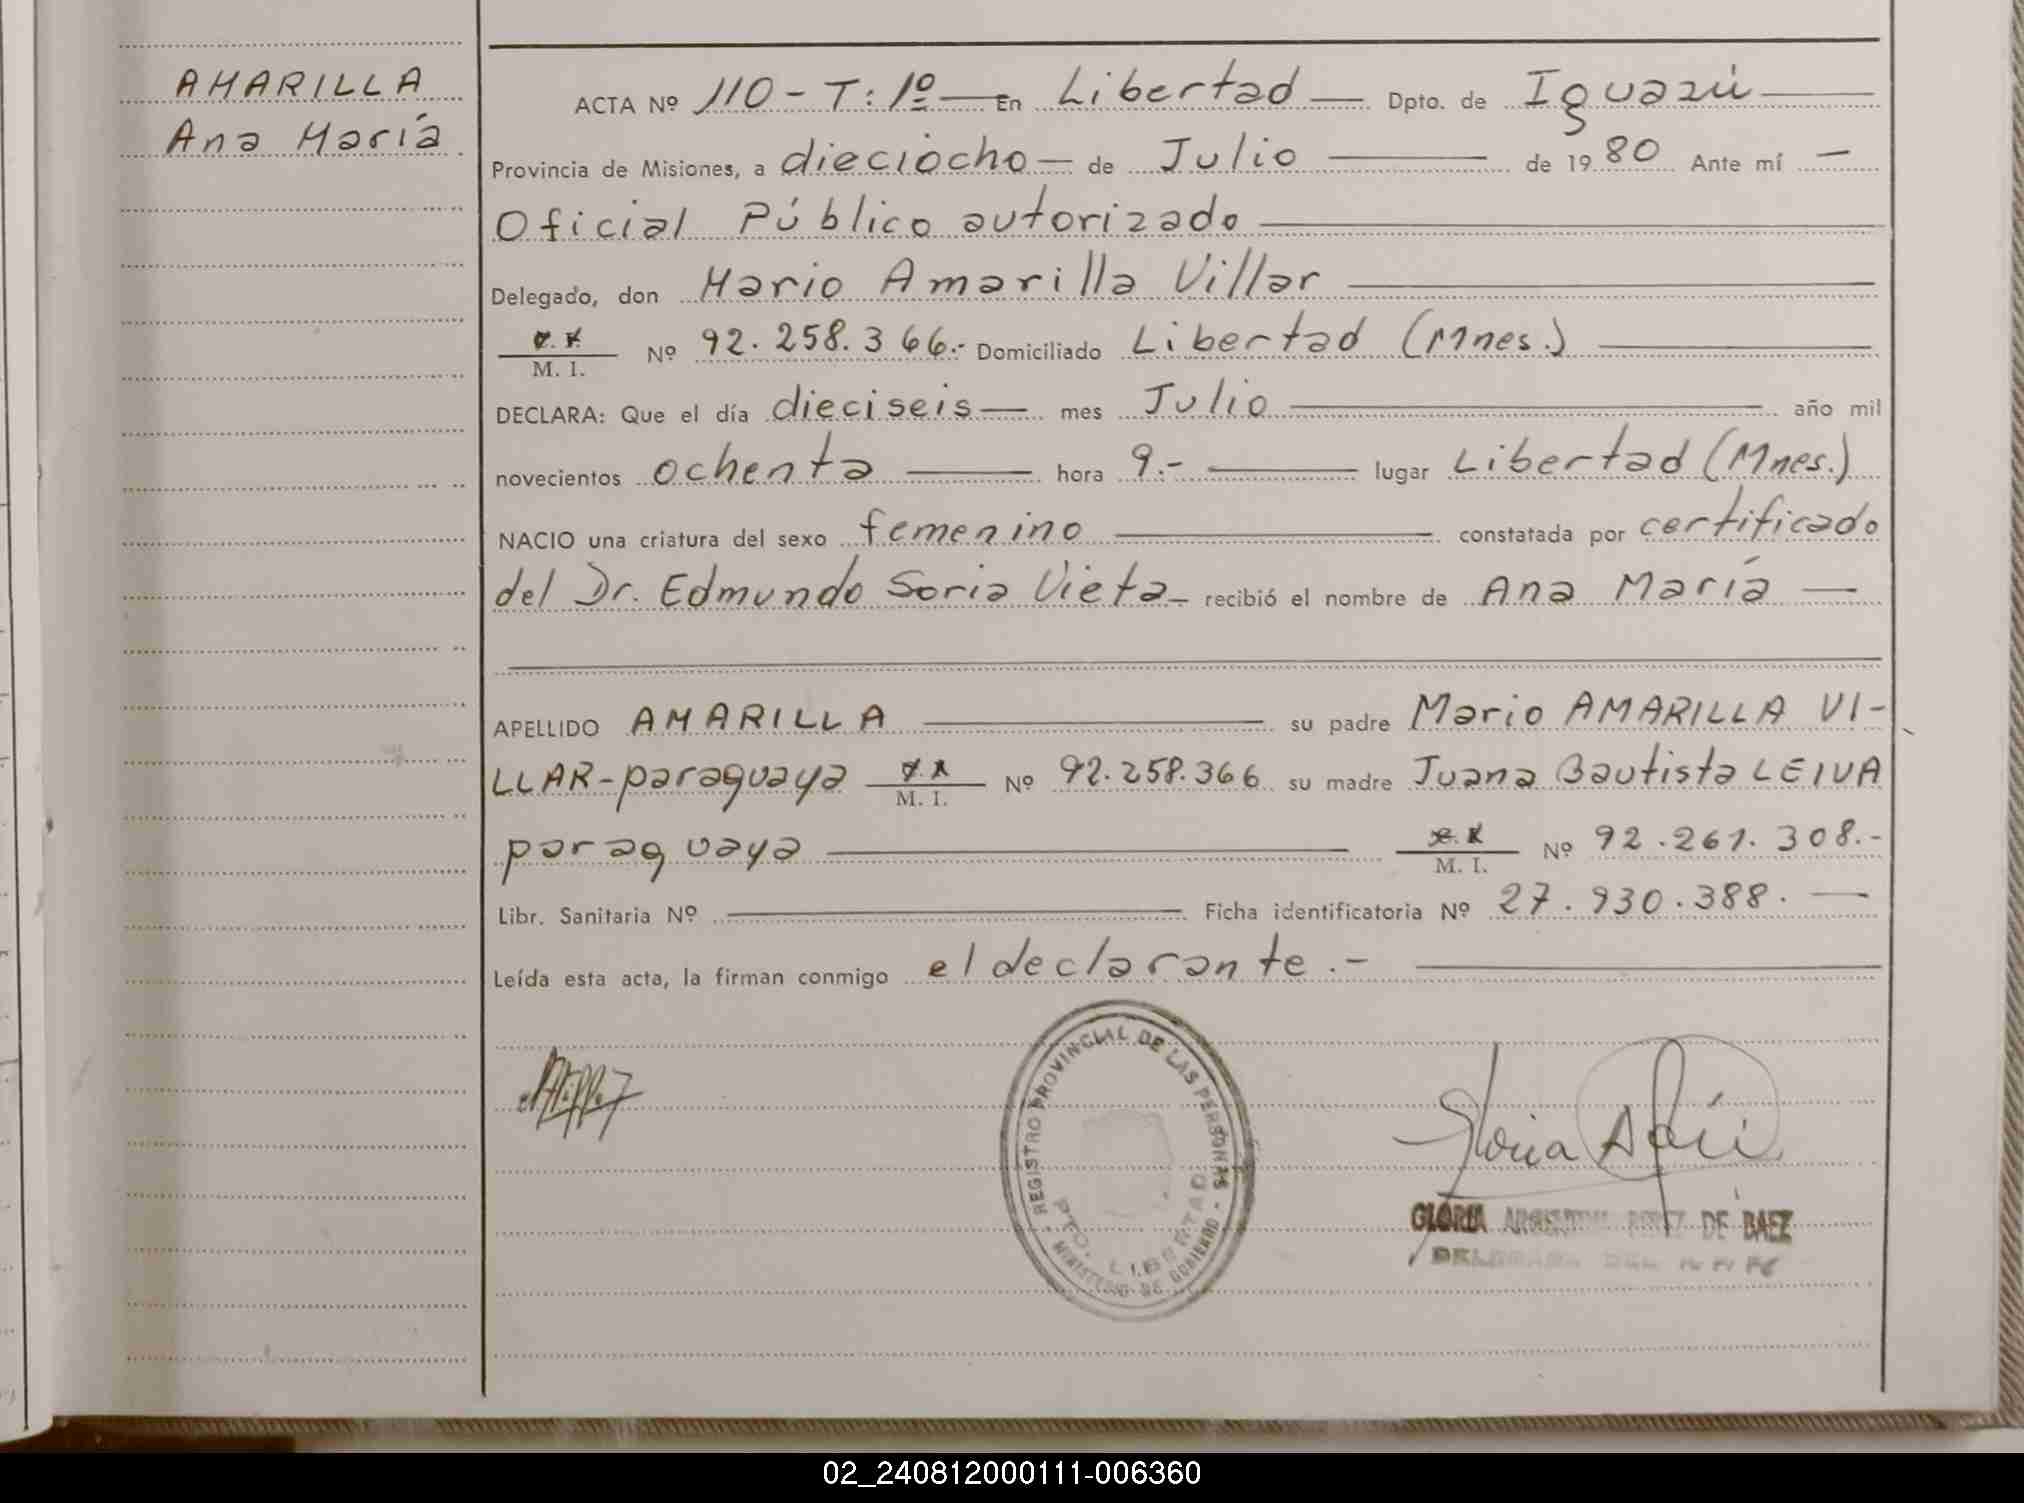 AMARILLA
Ana María
ACTA Nº 110 - T: 1º — En Libertad — Dpto. de Iguazú —
Provincia de Misiones, a dieciocho — de Julio — de 1980 Ante mí —
Oficial Público autorizado —
Delegado, don Mario Amarilla Villar —
M. I. Nº 92.258.366.- Domiciliado Libertad (Mnes.) —
DECLARA: Que el día dieciseis — mes Julio — año mil
novecientos ochenta — hora 9.- — lugar Libertad (Mnes.)
NACIO una criatura del sexo femenino — constatada por certificado
del Dr. Edmundo Soria Vieta — recibió el nombre de Ana María —
APELLIDO AMARILLA — su padre Mario AMARILLA VI-
LLAR - paraguaya M. I. Nº 92.258.366 su madre Juana Bautista LEIVA
paraguaya — M. I. Nº 92.261.308.-
Libr. Sanitaria Nº — Ficha identificatoria Nº 27.930.388. —
Leída esta acta, la firman conmigo el declarante.- —
REGISTRO PROVINCIAL DE LAS PERSONAS
PTO. LIBERTAD
MINISTERIO DE GOBIERNO
Gloria
GLORIA DE BAEZ
02_240812000111-006360